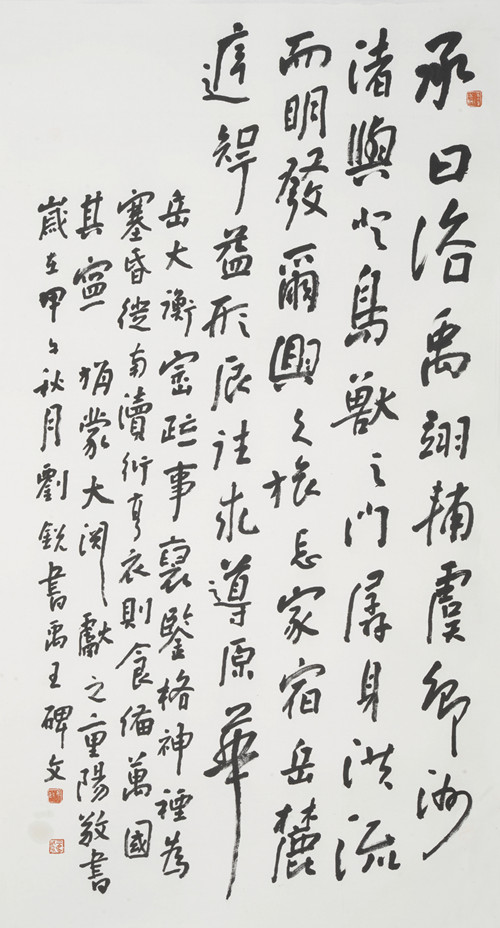 承曰禹翊輔虞卿洲
渚與登鳥獸之門身洪流
而明發爾興久旅忘家宿岳麓
庭智益形辰往求導原華
岳大衡疏事裒鑒格神禋為
塞昏徙南瀆衍亨衣則食備萬國
其寧 旃蒙大淵獻之重陽敬書
歲在甲午秋月劉銳書禹王碑文